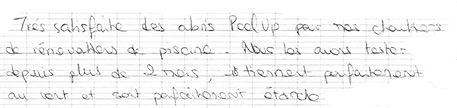 Très satisfaite des abris PoolUp pour nos chantiers
de rénovations de piscine. Nous les avons tester
depuis plus de 2 mois, tiennent parfaitement
au vent et sont parfaitement étanche